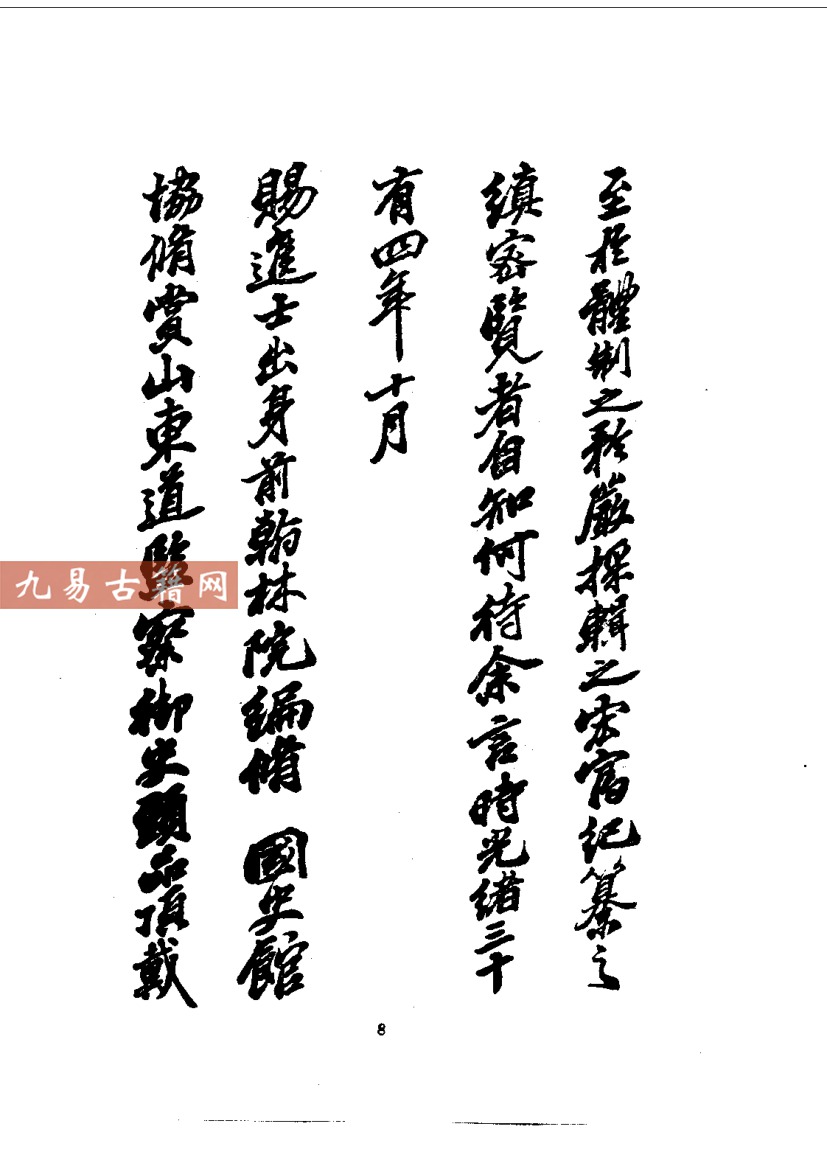 至於體制之矜嚴採輯之宏富紀纂之
縝密覽者自知何待余言時光緒三十
有四年十月
賜進士出身前翰林院編脩 國史館
協脩賞山東道監察御史頭品頂戴
九易古籍网
8